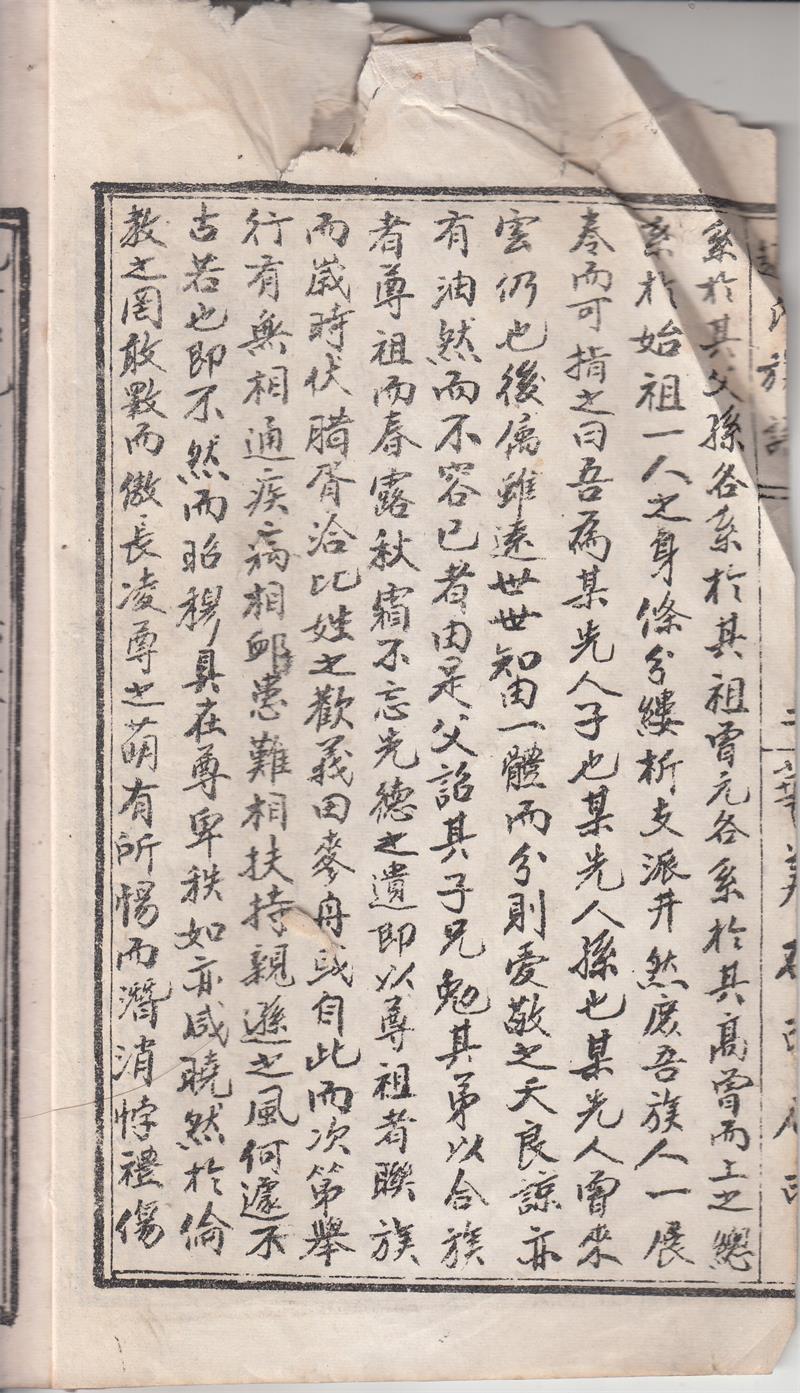 系於其父孫各系於其祖曾元各系於其高曾而上之總
系於始祖一人之身條分縷析支派井然庶吾族人一展
卷而可指之曰吾為某先人子也某先人孫也某先人曾來
雲仍也後屬雖遠世世知由一體而分則愛敬之天良諒亦
有油然而不容已者由是父詔其子兄勉其弟以合族
者尊祖而春露秋霜不忘先德之遺即以尊祖者聯族
而歲時伏腊胥洽比姓之歡義田麥舟或自此而次第舉
行有無相通疾病相卹患難相扶持親遜之風何遽不
古若也即不然而昭穆具在尊卑秩如亦咸曉然於倫
教之罔敢斁而傲長凌尊之萌有所惕而潛消悖禮傷